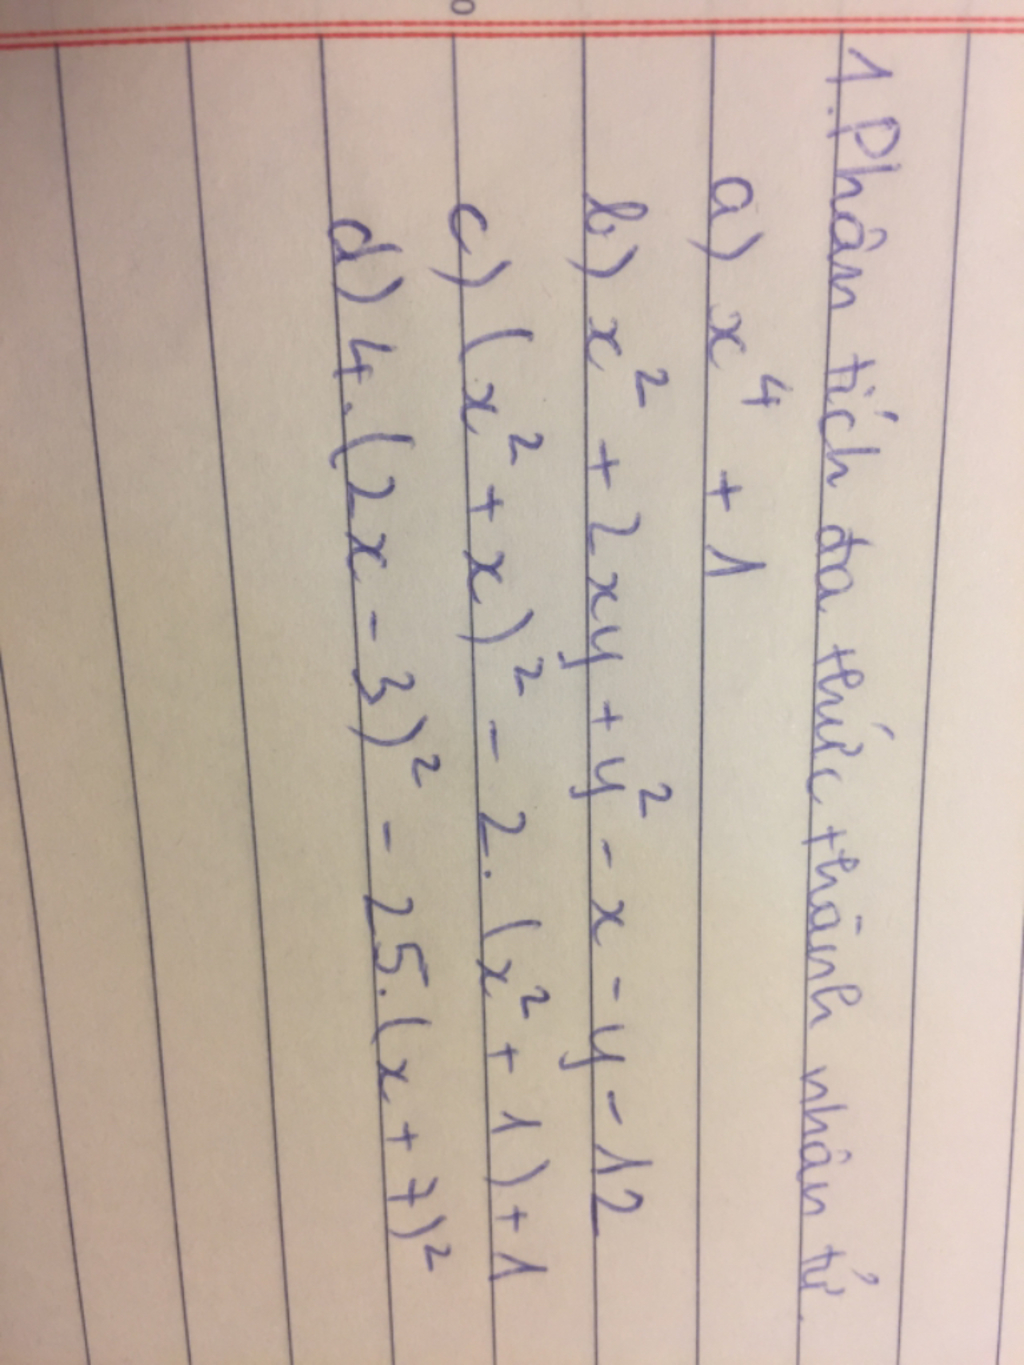 1. Phân tích đa thức thành nhân tử.
a) x⁴ + 1
b) x² + 2xy + y² - x - y - 12
c) (x² + x)² - 2.(x² + 1) + 1
d) 4.(2x - 3)² - 25.(x + 7)²